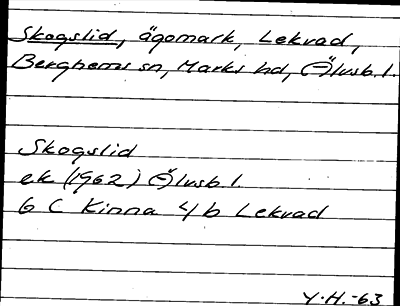 Skogslid, ägomark, Lekvad,
Berghems sn, Marks hd, Älvsb. l.
Skogslid
ek (1962) Älvsb l.
6 C Kinna 4 b Lekvad
Y.H.-63